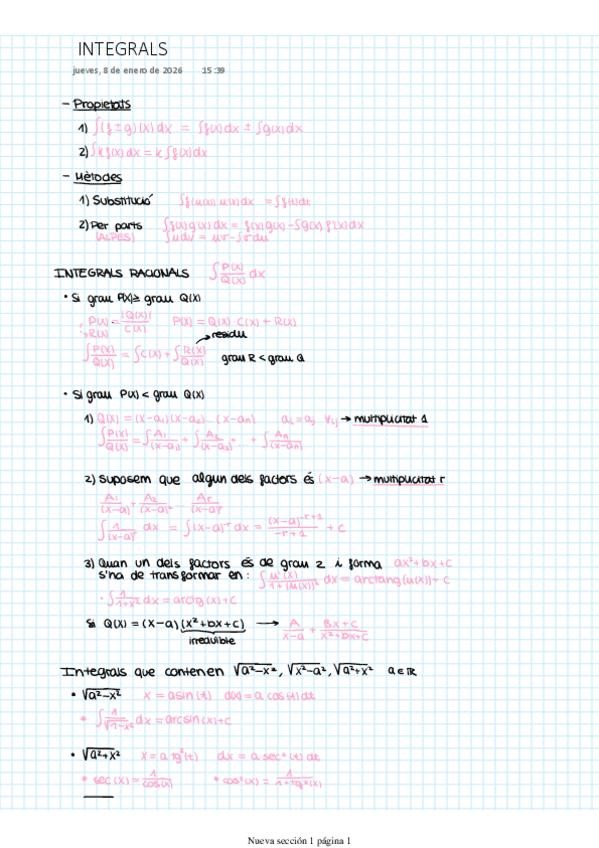 INTEGRALS
jueves, 8 de enero de 2026 15:39
- Propietats
1) ∫(f ± g)(x) dx = ∫f(x) dx ± ∫g(x) dx
2) ∫k f(x) dx = k ∫f(x) dx
- Mètodes
1) Substitució ∫f(u(x)) u'(x) dx = ∫f(t) dt
2) Per parts ∫f(x) g'(x) dx = f(x) g(x) - ∫g(x) f'(x) dx
(ALPES) ∫u dv = uv - ∫v du
INTEGRALS RACIONALS ∫P(x)/Q(x) dx
• Si grau P(x) ≥ grau Q(x)
P(x) |Q(x) P(x) = Q(x) · C(x) + R(x)
R(x) C(x)
→ residu
∫P(x)/Q(x) = ∫C(x) + ∫R(x)/Q(x) grau R < grau Q
• Si grau P(x) < grau Q(x)
1) Q(x) = (x-a₁)(x-a₂)...(x-aₙ) → multiplicitat 1
∫P(x)/Q(x) = ∫A₁/(x-a₁) + ∫A₂/(x-a₂) + ... + ∫Aₙ/(x-aₙ)
2) Suposem que algun dels factors és (x-a) → multiplicitat r
A₁/(x-a) + A₂/(x-a)² ... Ar/(x-a)ʳ
∫1/(x-a)ʳ dx = ∫(x-a)⁻ʳ dx = (x-a)⁻ʳ⁺¹/-r+1 + C
3) Quan un dels factors és de grau 2 i forma ax²+bx+c
s'ha de transformar en: ∫u'(x)/1+(u(x))² dx = arctang(u(x)) + C
• ∫1/1+x² dx = arctg(x) + C
Si Q(x) = (x-a)(x²+bx+c) → A/x-a + Bx+C/x²+bx+c
irreduïble
Integrals que contenen √a²-x², √x²-a², √a²+x² a∈ℝ
• √a²-x² x = a sin(t) d(x) = a cos(t) dt
* ∫1/√1-x² dx = arcsin(x) + C
• √a²+x² x = a tg(t) dx = a sec²(t) dt
* sec(x) = 1/cos(x) * cos²(x) = 1/1+tg²(x)
Nueva sección 1 página 1